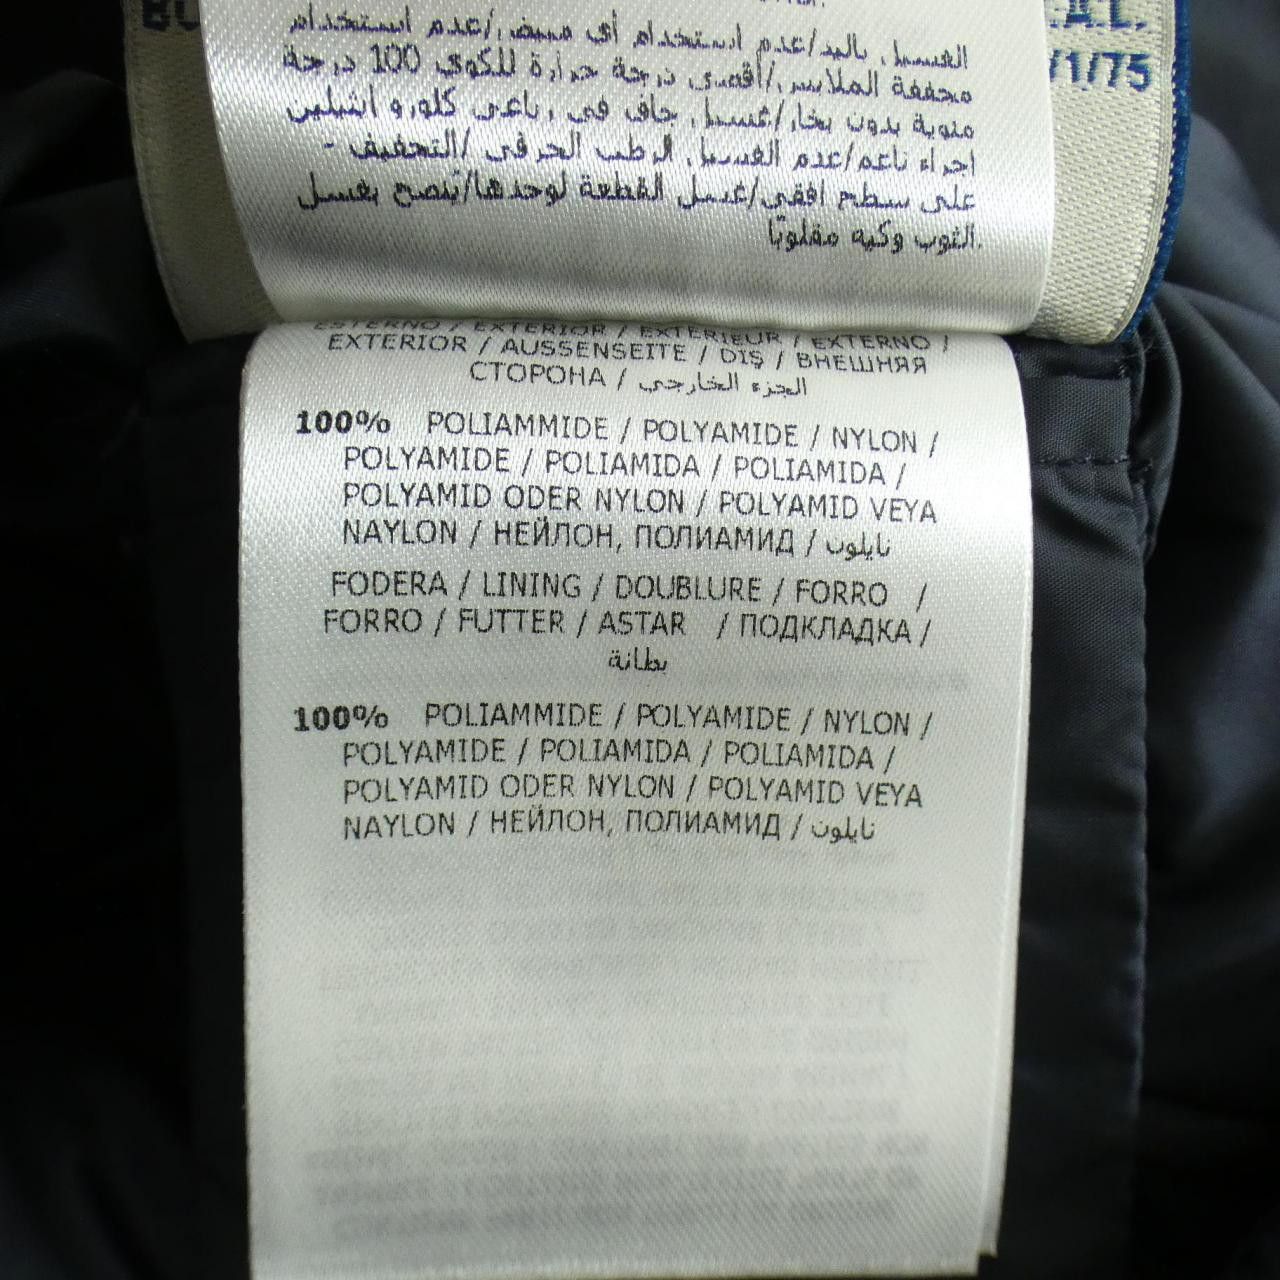 BU
.A.L.
/1/75
الغسيل باليد/عدم استخدام أي مبيض/عدم استخدام
مجففة الملابس/أقصى درجة حرارة للكوي 100 درجة
مئوية بدون بخار/غسيل جاف في رباعي كلورو اثيلين
اجراء ناعم/عدم الغسيل الرطب الحرفي/التجفيف -
على سطح افقي/غسل القطعة لوحدها/يُنصح بغسل
الثوب وكيه مقلوبًا.
ESTERNO / EXTERIOR / EXTERIEUR / EXTERNO /
EXTERIOR / AUSSENSEITE / DIŞ / ВНЕШНЯЯ
СТОРОНА / الجزء الخارجي
100% POLIAMMIDE / POLYAMIDE / NYLON /
POLYAMIDE / POLIAMIDA / POLIAMIDA /
POLYAMID ODER NYLON / POLYAMID VEYA
NAYLON / НЕЙЛОН, ПОЛИАМИД / نايلون
FODERA / LINING / DOUBLURE / FORRO /
FORRO / FUTTER / ASTAR / ПОДКЛАДКА /
بطانة
100% POLIAMMIDE / POLYAMIDE / NYLON /
POLYAMIDE / POLIAMIDA / POLIAMIDA /
POLYAMID ODER NYLON / POLYAMID VEYA
NAYLON / НЕЙЛОН, ПОЛИАМИД / نايلون